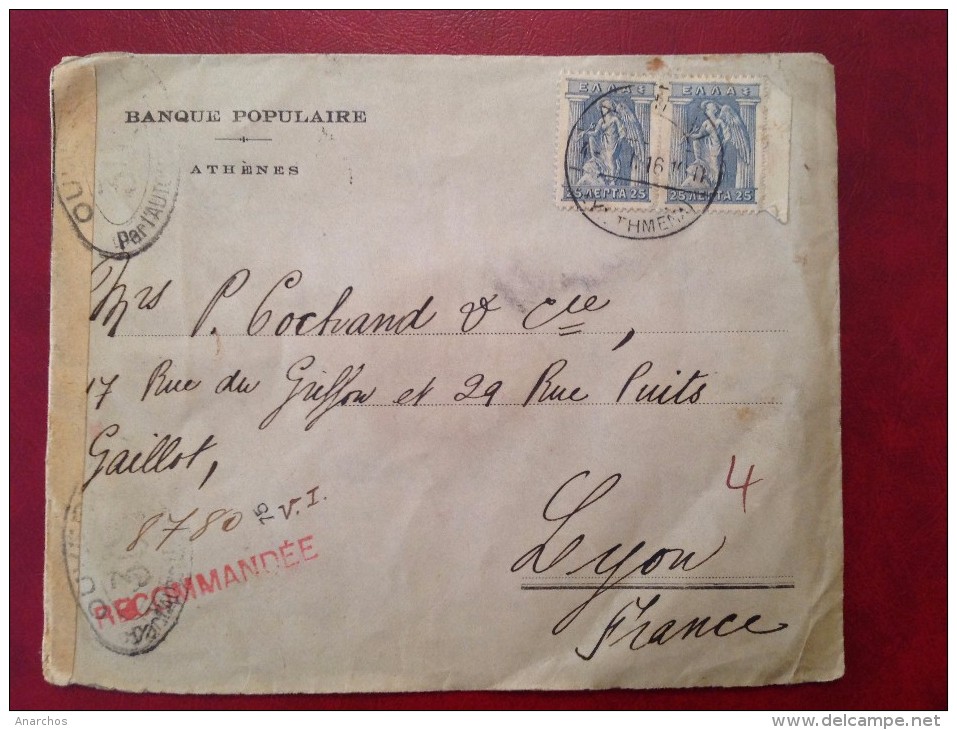 BANQUE POPULAIRE
ATHÈNES
ΕΛΛΑΣ
25 ΛΕΠΤΑ 25
25 ΛΕΠΤΑ 25
16
OU
Par l'Auto
Mrs P. Cochand & Cie,
17 Rue du Griffon et 29 Rue Puits
Gaillot,
4
8780 75 V. I.
RECOMMANDÉE
3
Lyon
France
Anarchos
www.delcampe.net